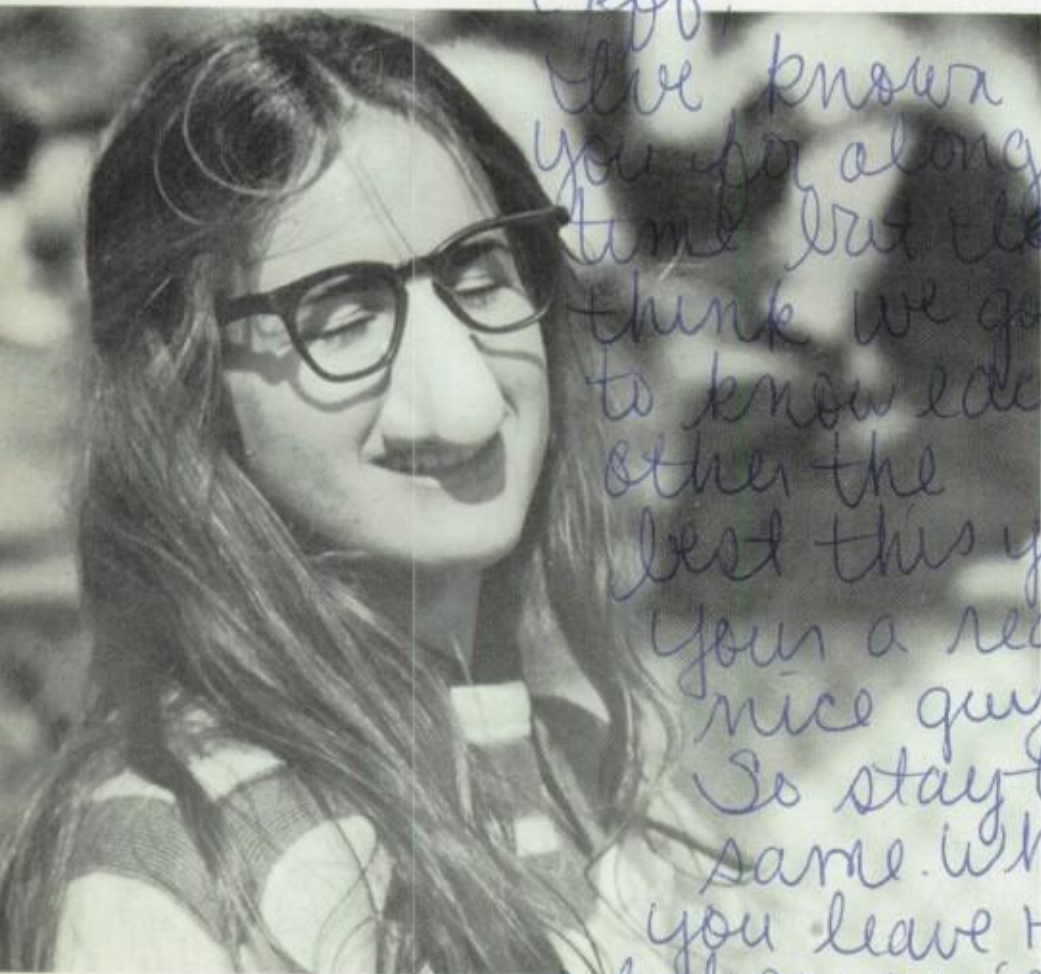 I've known
you for along
time but I
think we go
to know eac
other the
best this y
your a rea
nice guy
So stay t
same. Wh
you leave H